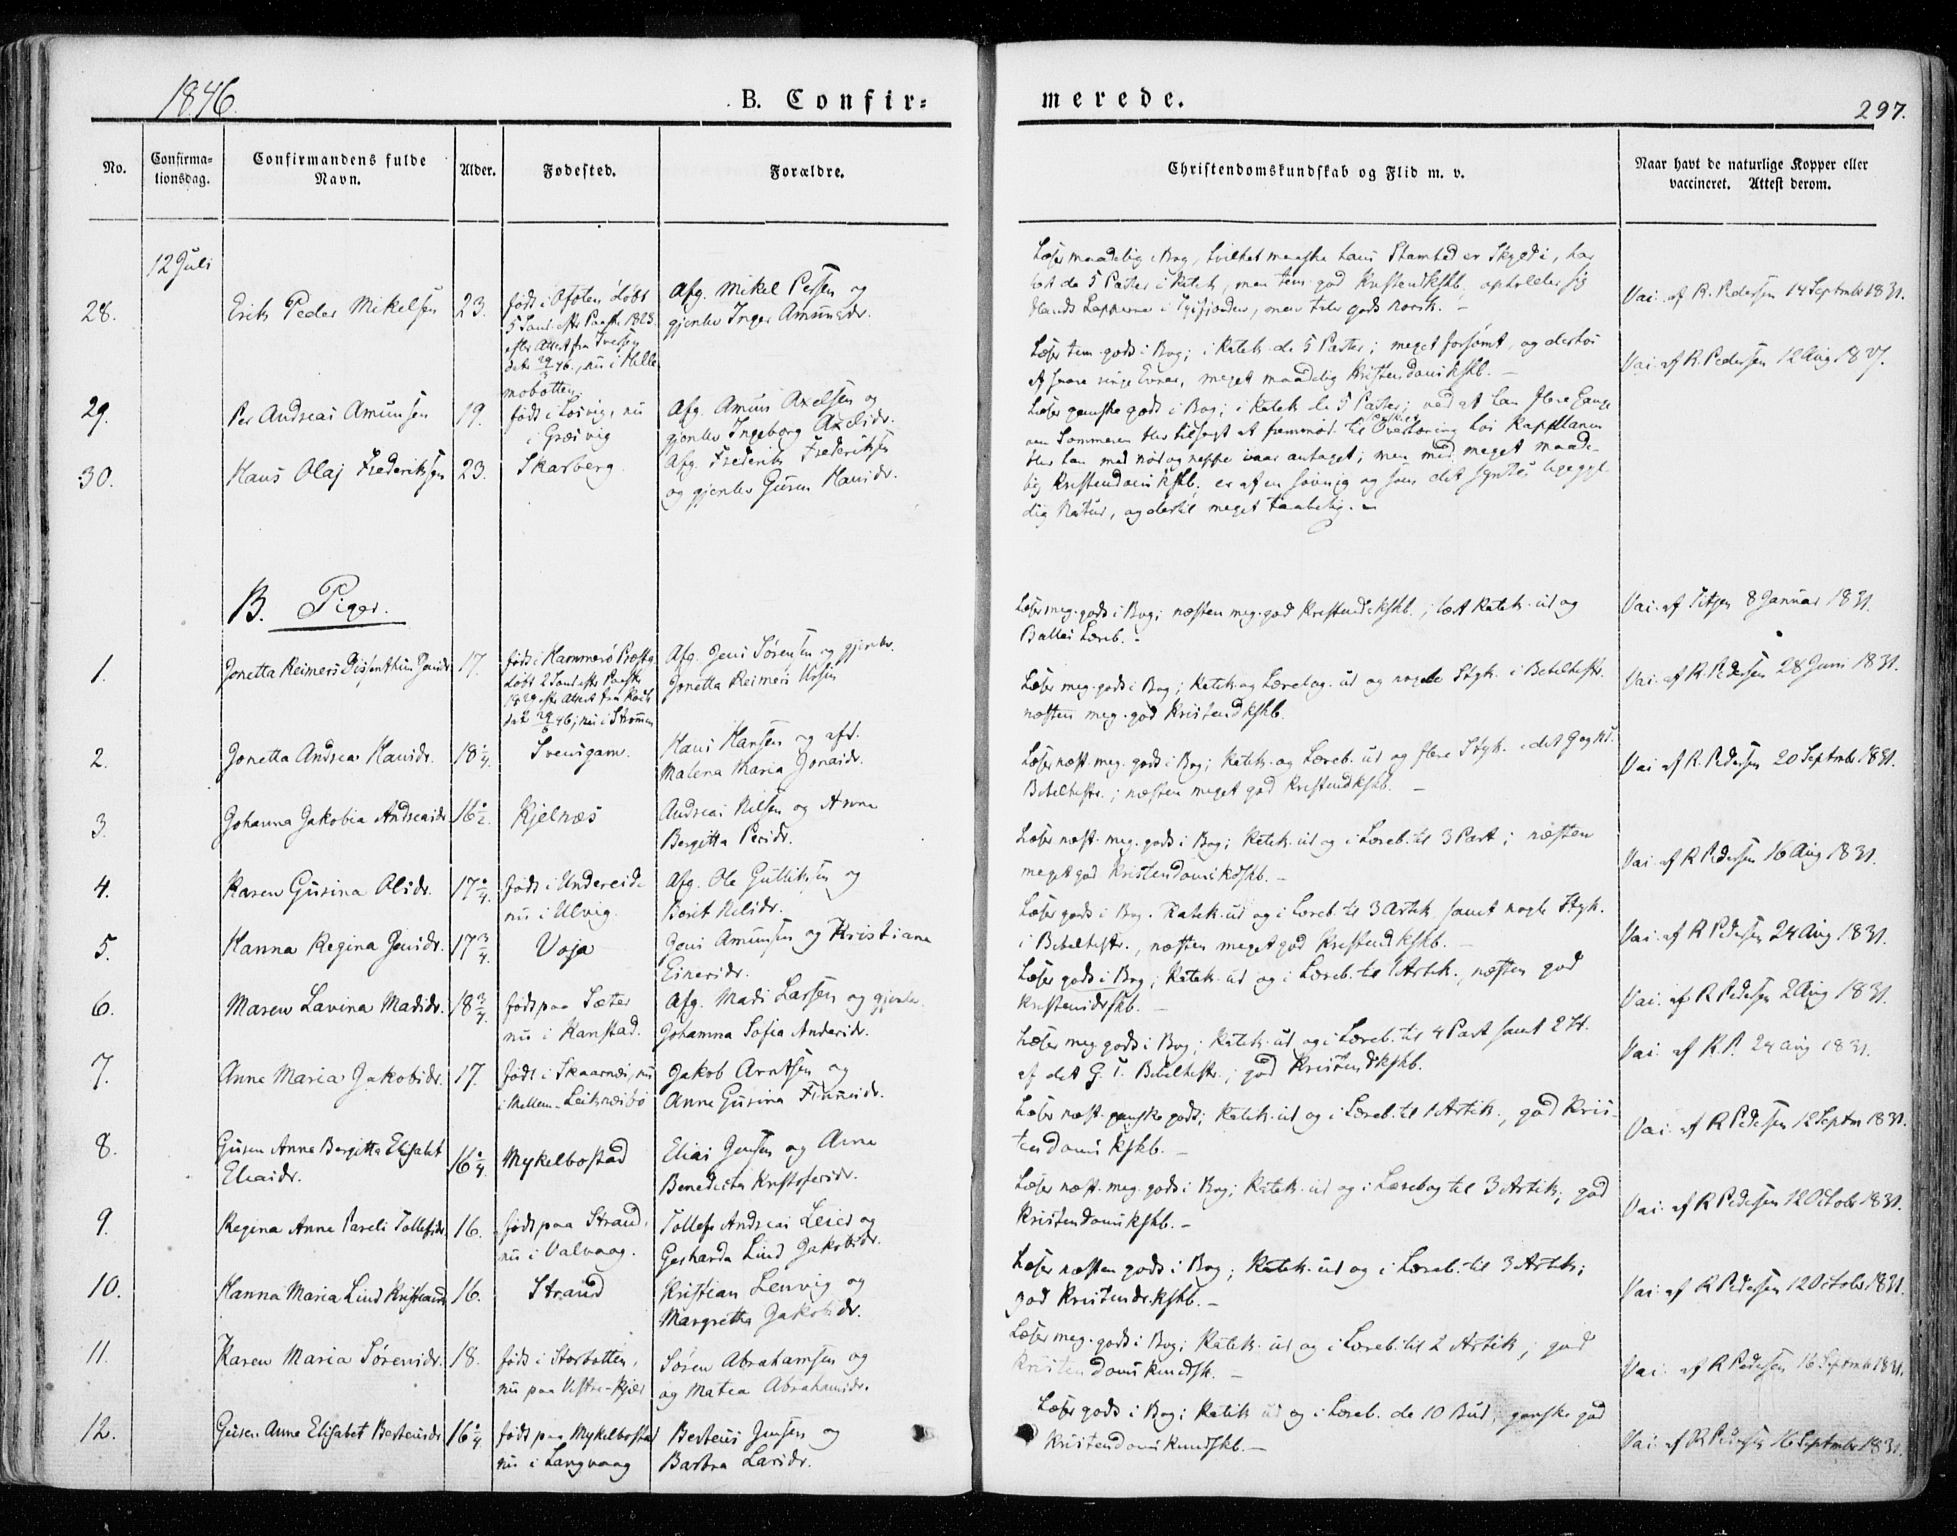 1846.
B. Confir=
merede.
297.
No.
Confirma-
tionsdag.
Confirmandens fulde
Navn.
Alder.
Fødested.
Forældre.
Christendomskundskab og Flid m. v.
Naar havt de naturlige Kopper eller
vaccineret. Attest derom.
12 Juli
28.
Erik Peder Mikelsen
23.
født i Ofoten, døbt
5 Sønd. efter Paaske 1823
efter Attest fra
nu i Helle
mobotten
Afg. Mikel Persen og
gjenlev Inger Amundsdr.
Læser maadelig i Bog, hvilket maaske hans Stamhed er Skyld i, har
læst de 5 Parter i Katek, men tem. god Kristendkskb, opholder sig
blandt Lapperne i Tysfjorden, men taler godt norsk. -
Vai. af R. Pedersen 14 Septmbr 1831.
29.
Per Andreas Amunsen
19.
født i Losvig, nu
i Græsvig
Afg. Amun Axelsen og
gjenlev Ingeborg Axelsdr.
Læser tem. godt i Bog; i Katek. de 5 Parter; meget forsømt, og derhos
af svare ringe Evner, meget maadelig Kristendomskskb. -
Vai. af R. Pedersen 12 Aug 1837.
30.
Hans Olaj Frederiksen
23.
Skarberg
Afg. Frederik Frederiksen
og gjenlev Gusen Hansdr.
Læser ganske godt i Bog; i Katek de 5 Parter; ved at han flere Gange
om Sommeren blev tilsagt at fremmøde til Overhøring hos Kapellanen
blev han med nød og neppe ivaar antaget; men med meget maade-
lig Kristendomskskb, er af en søvnig og som det syntes ligegyl-
dig Natur, og dertil meget taabelig. -
B. Piger.
1.
Jonetta Reimers Jensdr
17.
født i Hammerø Præstg.
døbt 2 Sønd. efter Paaske
1829 efter Attest fra
nu i Strømen
Afg. Jens Sørensen og gjenlev.
Jonetta Reimers
Læser meg. godt i Bog; næsten meg. god Kristendkskb.; læst Katek. ud og
Balles Læreb. -
Vai. af 8 Januar 1831.
2.
Jonetta Andrea Hansdr.
18¼.
Svensgam.
Hans Hansen og afd.
Malena Maria Jonasdr.
Læser meg. godt i Bog; Katek og Lærebog. ud og nogle Styk. i Bibelhistr.
næsten meg. god Kristendkskb.
Vai. af R. Pedersen 28 Juni 1831.
3.
Johanna Jakobia Andreasdr.
16½.
Kjelnæs
Andreas Nilsen og Anne
Bergitta Persdr.
Læser næst. meg. godt i Bog; Katek. og Læreb. ud og flere Styk. i det G.
Bibelhistr.; næsten meget god Kristendkskb. -
Vai. af R. Pedersen 20 Septmbr 1831.
4.
Karen Gusina Olsdr.
17¼.
født i Undereid.
nu i Ulvig.
Afg. Ole Gulliksen og
Berit Nilsdr.
Læser næst. meg. godt i Bog; Katek. ud og i Læreb. til 3 Part; næsten
meget god Kristendomskdskb. -
Vai. af R Pedersen 16 Aug 1831.
5.
Hanna Regina Jensdr.
17¾.
Voja
Jens Amunsen og Kristiana
Einersdr.
Læser godt i Bog. Katek. ud og i Læreb. til 3 Artik samt nogle Styk.
i Bibelhistr., næsten meget god Kristendkskb. -
Vai. af R Pedersen 24 Aug 1831.
6.
Maren Lavina Madsdr.
18¾.
født paa Sæter
nu i Kanstad.
Afg. Mads Larsen og gjenlev.
Johamna Sofia Andersdr.
Læser godt i Bog; Katek. ud og i Læreb. til 1 Artik.; næsten god
Kristendkskb. -
Vai. af R Pedersen 2 Aug 1831.
7.
Anne Maria Jakobsdr.
17.
født i Skaarnæs, nu
i Mellem-Leiknæsbø
Jakob Arntsen og
Anne Gusina
Læser meg godt i Bog; Katek. ud og i Læreb. til 4 Part samt 2 H.
af det G. T. Bibelhistr.; god Kristendkskb.
Vai. af R. P. 24 aug 1831.
8.
Gusen Anne Bergitta Elisabet
Eliasdr.
16¼.
Mykelbostad
Elias Jensen og Anne
Benedicta Kristofersdr.
Læser næst. ganske godt; Katek. ud og i Læreb. til 1 Artik., god Kris-
tendomskskb. -
Vai. af R Pedersen 12 Septm 1831.
9.
Regina Anne Pareli Tollefsdr.
16.
født paa Strand,
nu i Valvaag.
Tollef Andreas og
Gerharda Lind Jakobsdr.
Læser næst. meg. godt i Bog; Katek. ud og i Lærebog til 3 Artik; god
Kristendomskskb. -
Vai. af R Pedersen 12 Octobr 1831.
10.
Hanna Maria Lind Kristiansdr
16.
Strand
Kristian Lenvig og
Margretha Jakobsdr.
Læser næsten godt i Bog; Katek. ud og i Læreb. til 3 Artik;
god Kristendkskb. -
Vai. af R Pedersen 12 Octobr 1831.
11.
Karen Maria Sørensdr.
18.
født i Storbotten,
nu paa Vestre-Kjær
Søren Abrahamsen og
og Matea Abrahamsdr.
Læser meg. godt i Bog; Katek. ud og i Læreb. til 2 Artik; god
Kristendomskundsk. -
Vai. af R Pedersen 16 Septmbr 1831.
12.
Gusen Anne Elisabet Berteusdr
16¼
født paa Mykelbostad
nu i Langvaag
Berteus Jensen og
Barbra Larsdr.
Læser godt i Bog; Katek ud og i Læreb. de 10 Bud, ganske god
Kristendomskundskb. -
Vai. af R Pedersen 16 Septmbr 1831.